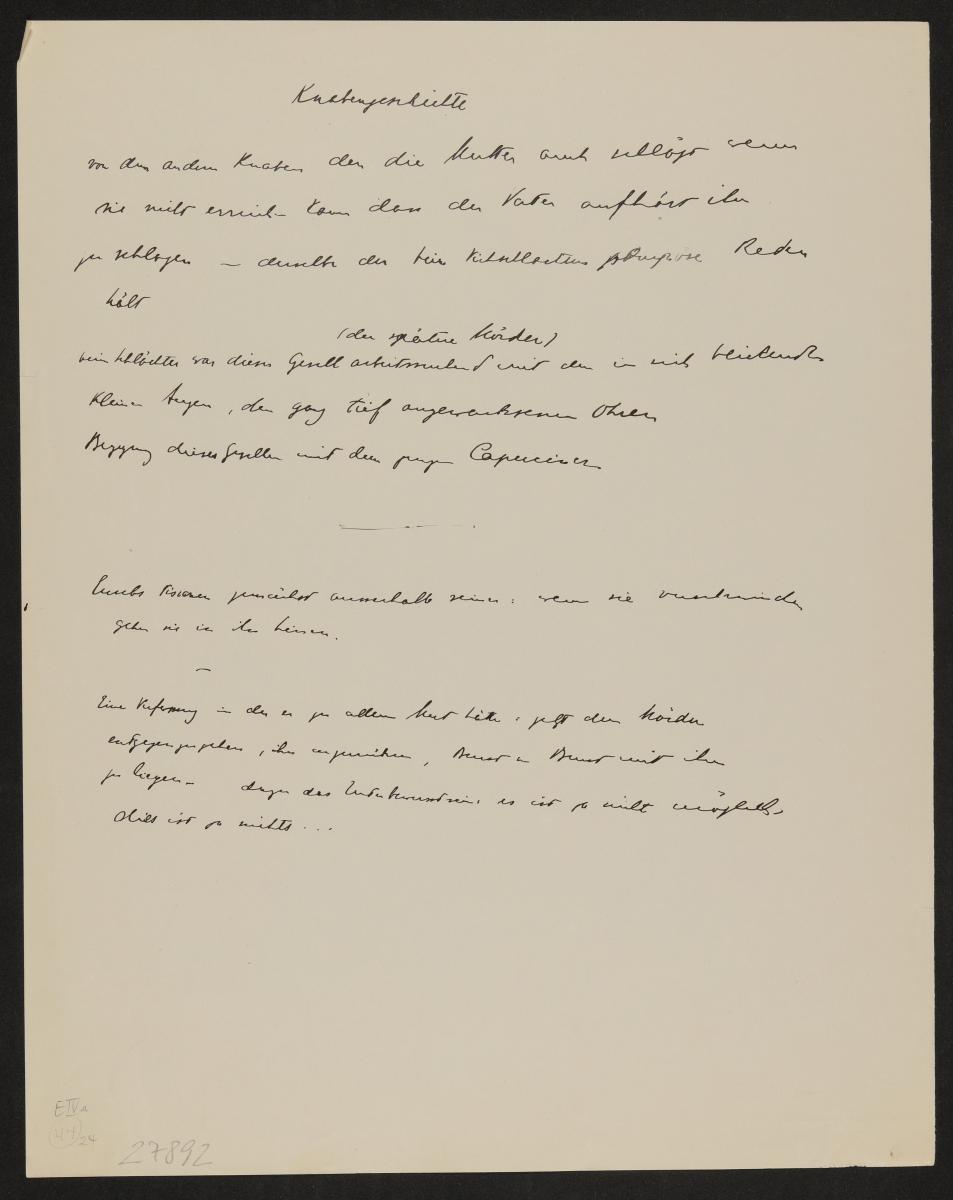 Knabengeschichte
von dem andern Knaben den die Mutter auch schlägt wenn
sie nicht erreichen kann dass der Vater aufhört ihn
zu schlagen — derselbe der beim pompöse Reden
hält
(der spätere Mörder)
beim war dieser Gesell mit den in sich
kleinen Augen, den ganz tief angewachsenen Ohren
Begegnung dieses Gesellen mit dem jungen Capuciner
Visionen zunächst ausserhalb seiner: wenn sie verschwinden
gehen sie in ihn hinein.
Eine in der er zu allem Mut hätte: jetzt dem Mörder
entgegenzugehen, ihn anzurühren, Brust an Brust mit ihm
zu liegen – dagegen das es ist ja nicht möglich
dies ist ja nichts...
E IV A
44
24
27892